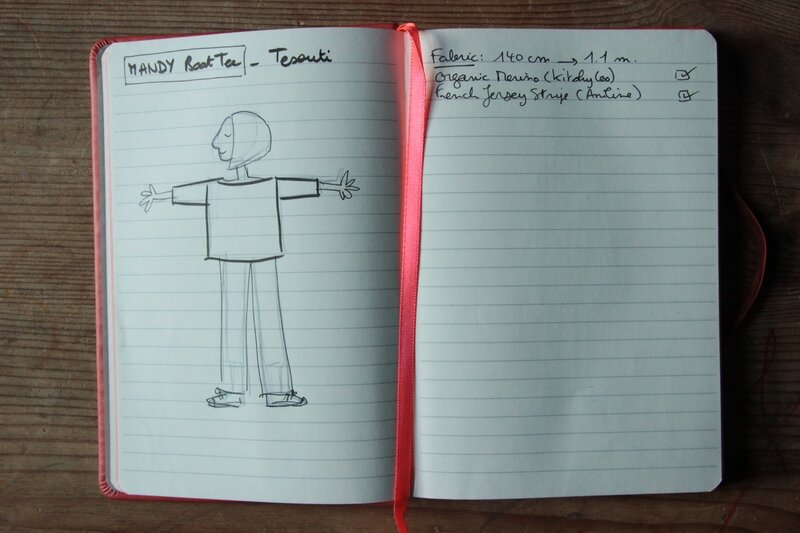 MANDY Boat Tee - Tessuti
Fabric: 140 cm → 1.1 m.
Organic Merino (kitschy coo) ☑
French Jersey Stripe ☑